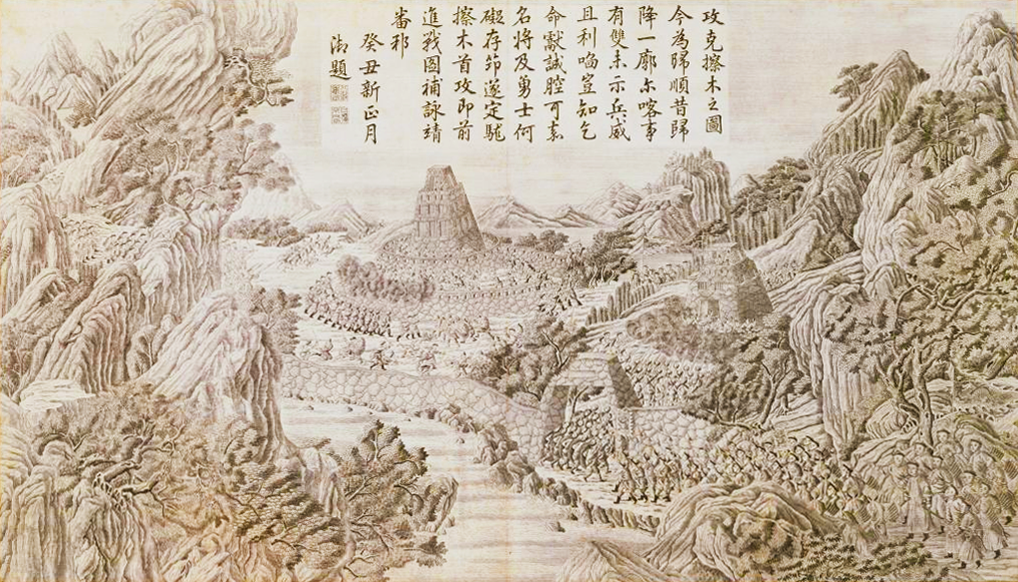 攻克擦木之圖
今為歸順昔歸
降一廓尔喀事
有雙未示兵威
且利啗豈知乞
命獻誠腔可嘉
名將及勇士何
礙存遂定駹
擦木首攻即前
進戰圖補詠靖
番邪
癸丑新正月
御題